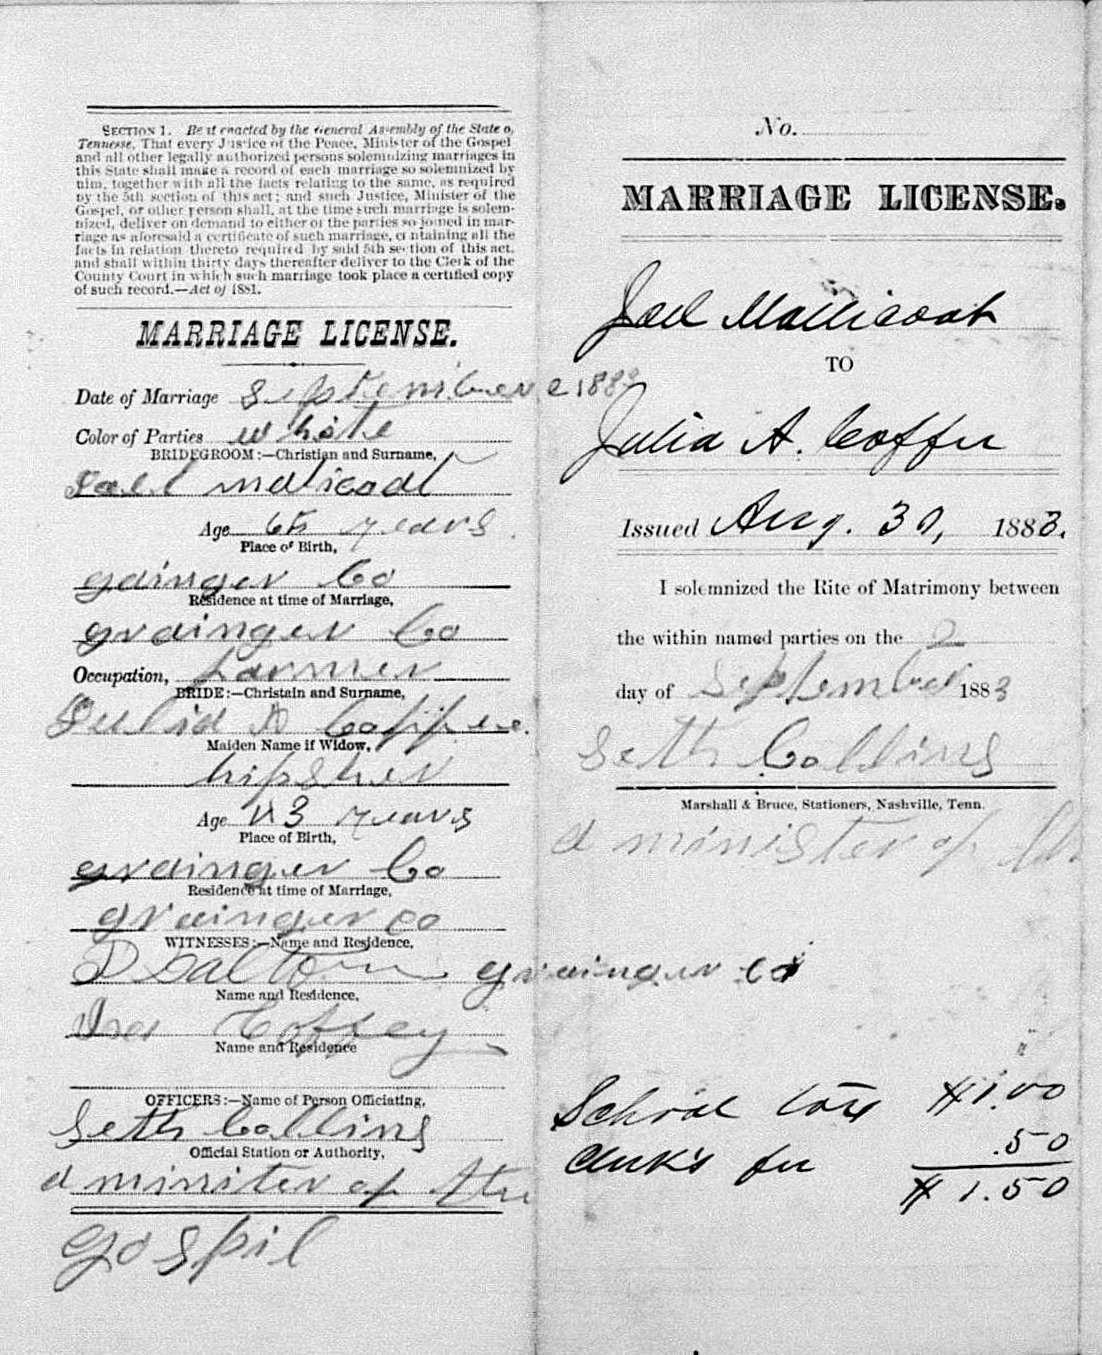 SECTION 1. Be it enacted by the General Assembly of the State o,
Tennesse, That every Justice of the Peace, Minister of the Gospel
and all other legally authorized persons solemnizing marriages in
this State shall make a record of each marriage so solemnized by
him, together with all the facts relating to the same, as required
by the 5th section of this act; and such Justice, Minister of the
Gospel, or other person shall, at the time such marriage is solem-
nized, deliver on demand to either of the parties so joined in mar-
riage as aforesaid a certificate of such marriage, containing all the
facts in relation thereto required by said 5th section of this act,
and shall within thirty days thereafter deliver to the Clerk of the
County Court in which such marriage took place a certified copy
of such record.—Act of 1881.
MARRIAGE LICENSE.
Date of Marriage September 2 1883
Color of Parties white
BRIDEGROOM:—Christian and Surname,
Joel malicoat
Age years
Place of Birth,
gainger Co
Residence at time of Marriage,
grainger Co
Occupation, farmer
BRIDE:—Christain and Surname,
Julia A
Maiden Name if Widow,
hipsher
Age 43 years
Place of Birth,
grainger Co
Residence at time of Marriage,
grainger co
WITNESSES:—Name and Residence,
D Dalton grainger co
Name and Residence,
Ira Coffey
Name and Residence
OFFICERS:—Name of Person Officiating,
Seth Collins
Official Station or Authority,
a minister of the
gospil
No.
MARRIAGE LICENSE.
Joel Mallicoat
TO
Julia A. Coffee
Issued Aug. 30, 1883.
I solemnized the Rite of Matrimony between
the within named parties on the 2
day of September 1883
Seth Collins
Marshall & Bruce, Stationers, Nashville, Tenn.
a minister of the
School tax $1.00
Clerk's fee .50
$1.50